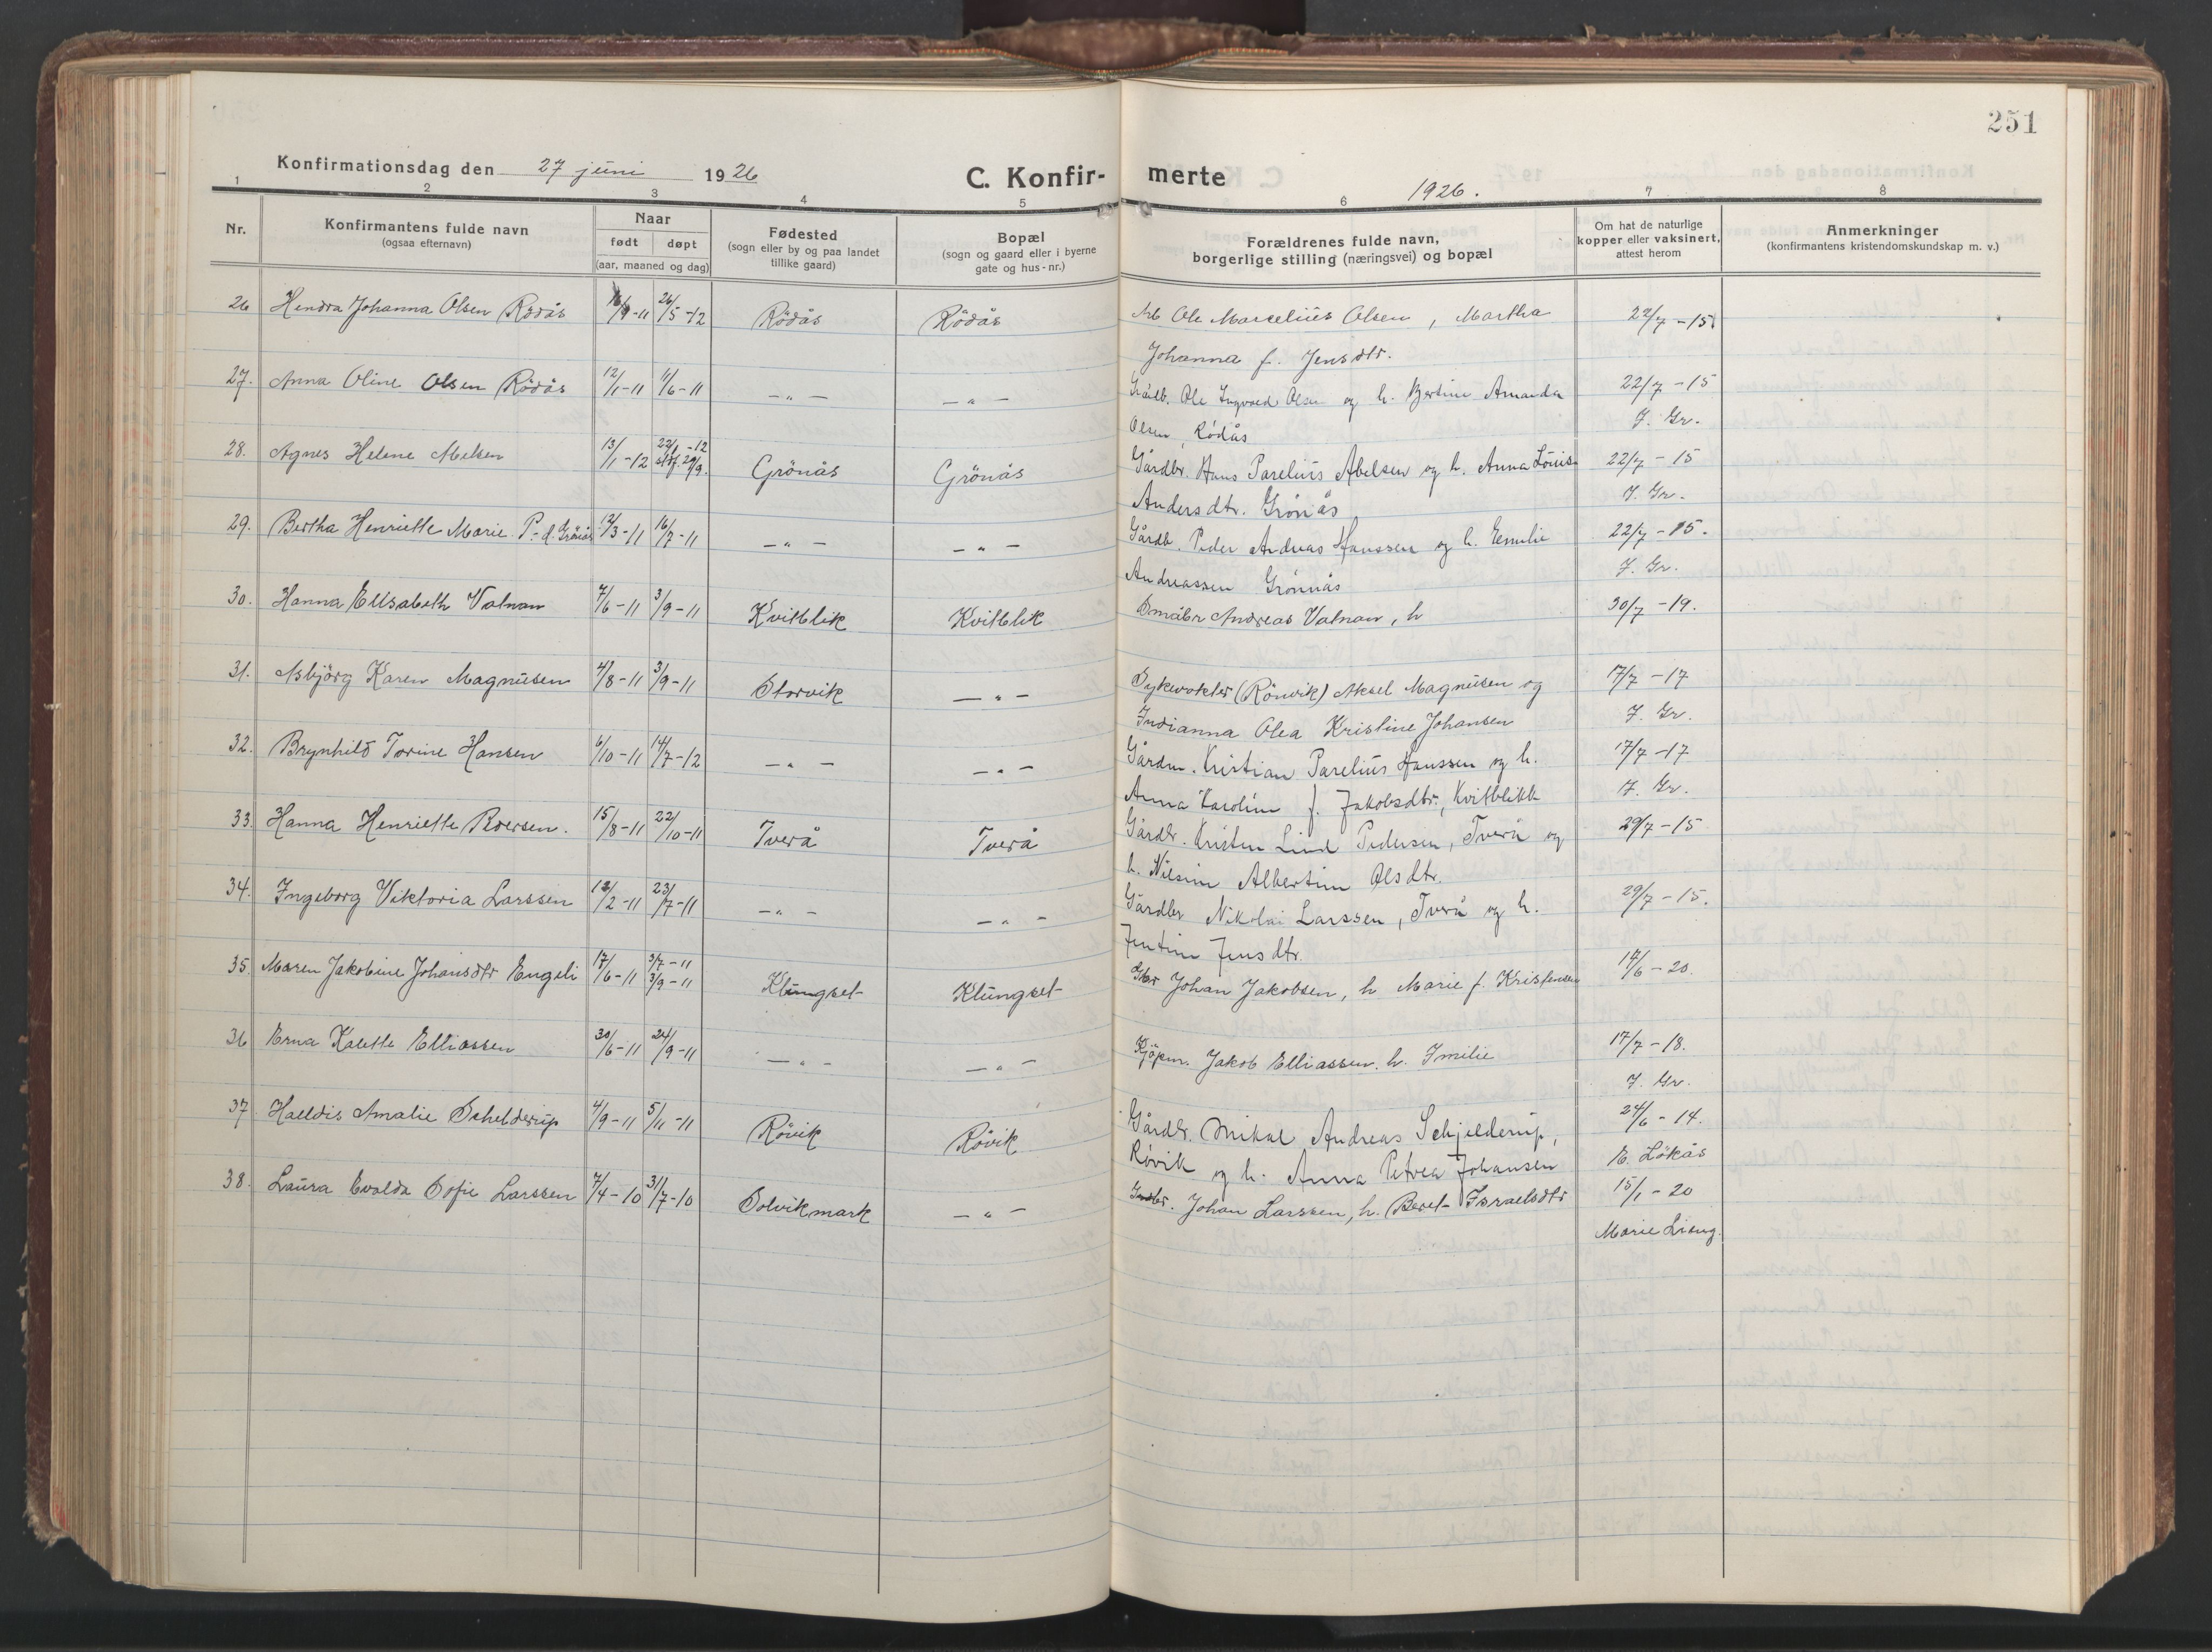 251
Konfirmationsdag den 27 juni 1926
C. Konfir-
merte
1926.
1 2 3 4 5 6 7 8
Nr.
Konfirmantens fulde navn
(ogsaa efternavn)
Naar
født døpt
(aar, maaned og dag)
Fødested
(sogn eller by og paa landet
tillike gaard)
Bopæl
(sogn og gaard eller i byerne
gate og hus-nr.)
Forældrenes fulde navn,
borgerlige stilling (næringsvei) og bopæl
Om hat de naturlige
kopper eller vaksinert,
attest herom
Anmerkninger
(konfirmantens kristendomskundskap m. v.)
26 Hendra Johanna Olsen Rödås 16/9-11 26/5-12 Rödås Rödås Arb Ole Marcelius Olsen, Martha 22/7-15
Johanna f. Jensdtr.
27. Anna Oline Olsen Rödås 12/1-11 11/6-11 -"- -"- Gårdb. Ole Ingvard Olsen og h. Bertine Amanda 22/7-15
Olsen, Rödås J. Gr.
28. Agnes Helene Abelsen 13/1-12 22/1-12 stdf. 29/9. Grönås Grönås Gårdbr. Hans Parelius Abelsen og h. Anna Louise 22/7-15
Andersdtr. Grönås J. Gr.
29. Bertha Henriette Marie P.-d. Grönås 12/3-11 16/7-11 -"- -"- Gårdb. Peder Andreas Hanssen og h. Emilie 22/7-15.
Andreassen Grönnås J. Gr.
30. Hanna Ellsabeth Vatnan 7/6-11 3/9-11 Kvitblik Kvitblik Småbr Andreas Vatnan, h 30/7-19.
31. Asbjörg Karen Magnusen 4/8-11 3/9-11 Storvik -"- Sykevokter (Rönvik) Aksel Magnusen og 17/7-17
Indianna Olea Kristine Johansen J. Gr.
32. Brynhild Torine Hansen 6/10-11 14/7-12 -"- -"- Gårdm. Kristian Parelius Hanssen og h. 17/7-17
Anna Karoline f. Jakobsdtr., Kvitblikk J. Gr.
33. Hanna Henriette Pedersen. 15/8-11 22/10-11 Tverå Tverå Gårdbr. Kristen Lind Pedersen, Tverå og 29/7-15
h. Nilsine Albertine Olsdtr.
34. Ingeborg Viktoria Larssen 12/2-11 23/7-11 -"- -"- Gårdbr Nikolai Larssen, Tverå og h. 29/7-15.
Jentine Jensdtr.
35. Maren Jakobine Johansdtr Engeli 17/6-11 3/7-11 3/9-11 Klungset Klungset Gbr Johan Jakobsen, h Marie f. Kristensen 14/6-20.
36 Erna Kalette Elliassen 30/6-11 24/9-11 -"- -"- Kjöpm. Jakob Elliassen. h. Imilie 17/7-18.
J. Gr.
37 Haldis Amalie Schelderup 4/9-11 5/11-11 Rövik Rövik Gårdbr. Mikal Andreas Schjelderup, 24/6-14.
Rövik og h. Anna Petrea Johansen E. Lökås
38. Laura Evalda Sofie Larssen 7/4-10 31/7-10 Solvikmark -"- Johan Larssen, h. Beret Israelsdtr 15/1-20
Marie Lieng.